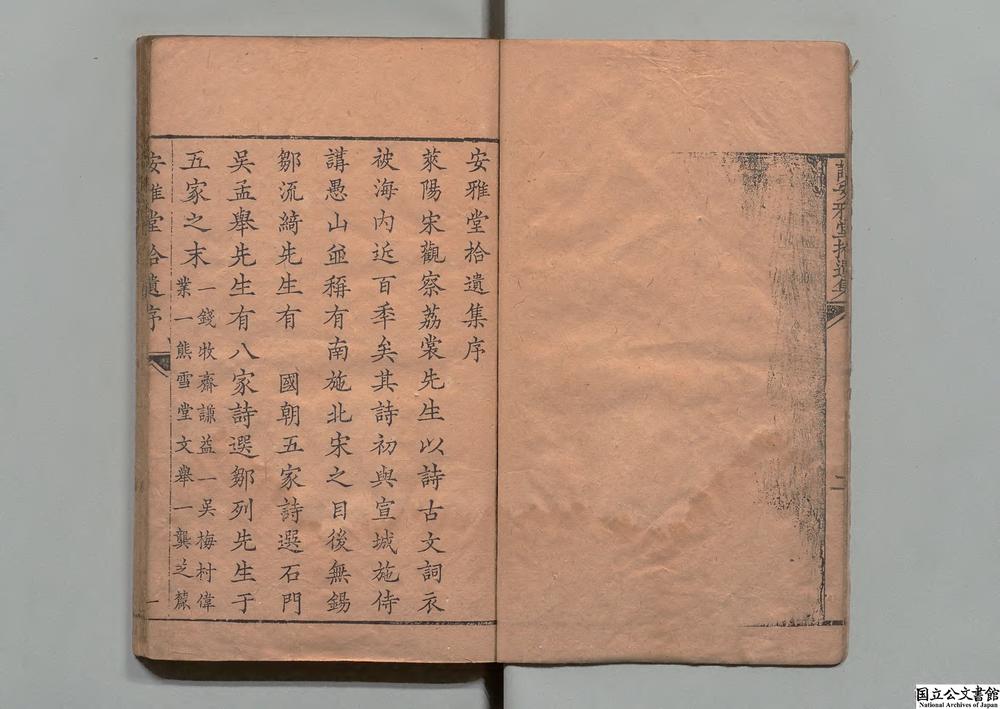 安雅堂拾遺集
二
安雅堂拾遺集序
萊陽宋觀察荔裳先生以詩古文詞衣
被海內近百秊矣其詩初與宣城施侍
講愚山並稱有南施北宋之目後無錫
鄒流綺先生有　國朝五家詩選石門
吳孟舉先生有八家詩選鄒列先生于
五家之末一錢牧齋謙益一吳梅村偉
業一熊雪堂文舉一龔芝麓
安雅堂拾遺序
一
国立公文書館
National Archives of Japan